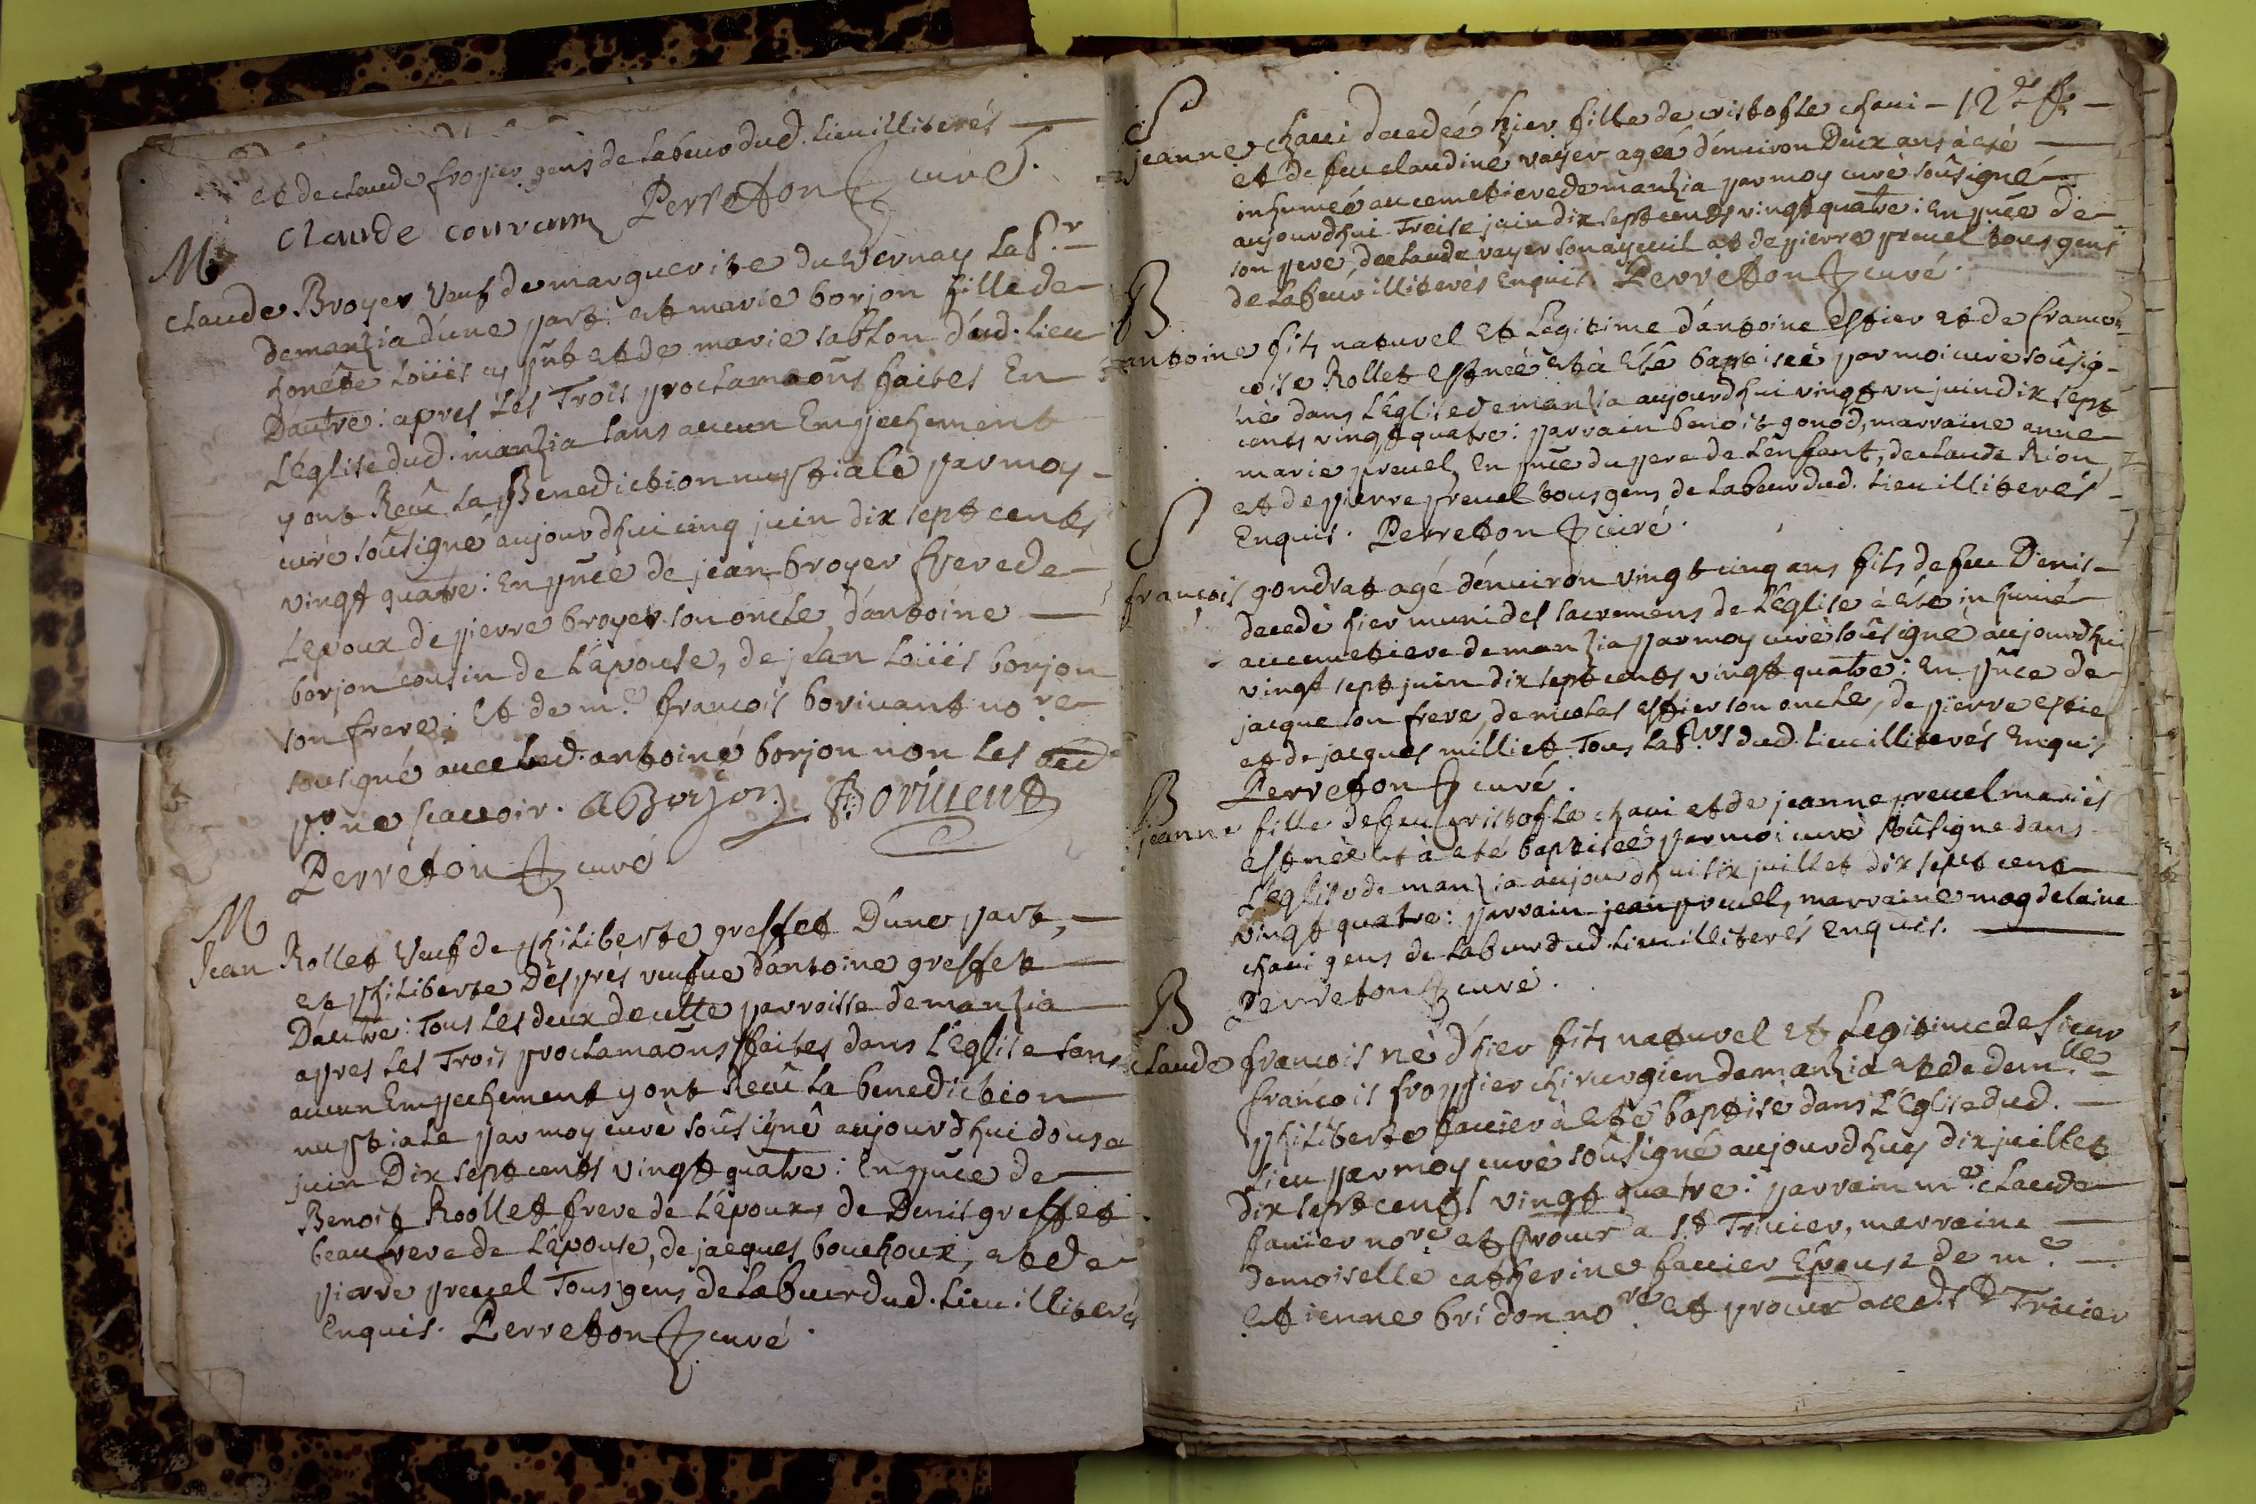 et de claude froppier gens de labeur dud. lieu illiterés
claude couvram Perreton curé
M
claude Broyer veuf de marguerite du vernay lab.r
de manzia d'une part et marie borjon fille de
honête Loüis cy pn̄t et de marie sablon dud. lieu
D'autre: apres les Trois proclamaõns faites En
L'église dud. manzia sans aucun Empechement
y ont Reçû la Benediction nuptiale par moy
curé soûsigné aujourdhui cinq juin dix sept cents
vingt quatre: En pn̄ce de jean broyer frere de
L'epoux de pierre broyer son oncle, d'antoine
borjon cousin de L'epouse, de jean Loüis borjon
son frere; Et de m.e françois borivant no.re
sousigné avec led. antoine borjon non les
p.r ne scavoir. A Borjon Borivent
Perreton curé
M
Jean Rollet Veuf de philiberte greffet D'une part,
et philiberte Des prés veufve d'antoine greffet
Dautre: Tous Les deux de cette parroisse de manzia
apres Les Trois proclamaõns faites dans L'Eglise sans
aucun Empechement y ont Reçû la benediction
nuptiale par moy curé soûsigné aujourdhui douse
juin Dix sept cents vingt quatre: En pn̄ce de
Benoit Roollet frere de L'époux, de Denis greffet
beaufrere de L'épouse, de jacques bouchoux, et de
pierre preuel Tous gens de Labeur dud. Lieu illiterés
Enquis. Perreton curé.
S
jeanne chavi decedée hier fille de cristofle chavi - 12
et de feu claudine vayer agée d'environ Deux ans à eté
inhumée au cemetiere de manzia par moy curé soûsigné
aujourdhui Treise juin dix sept cents vingt quatre: En pn̄ce de
son pere, de claude vayer son ayeuil et de pierre preuel tous gens
de Labeur illiterés Enquis. Perreton curé.
B
antoine fils naturel et Légitime d'antoine estier et de franco-
oise Rollet est né et à eté baptisé par moi curé soûsig-
né dans L'église de manzia aujourdhui vingt un juin dix sept
cents vingt quatre: parrain benoit gonod, marraine anne
marie preuel, En pn̄ce du pere de L'enfant, de claude Rion
et de pierre preuel tous gens de Labeur dud. Lieu illiterés
Enquis. Perreton curé.
S
françois gondrat agé d'environ vingt cinq ans fils de feu Denis
decedé hier muni des sacremens de L'église à eté inhumé
au cemetiere de manzia par moy curé soûsigné aujourdhui
vingt sept juin dix sept cents vingt quatre: En pn̄ce de
jacque son frere, de nicolas estier son oncle, de pierre estier
et de jacques milliet Tous lab.rs dud. Lieu illiterés Enquis
Perreton curé.
B
jeanne fille de feu cristofle chavi et de jeanne preuel mariés
est née et à eté baptisée par moi curé soûsigné dans
L'eglise de manzia aujourdhui six juillet dix sept cent
vingt quatre: parrain jean preuel, marraine magdelaine
chavi gens de Labeur dud. Lieu illiterés Enquis.
Perreton curé.
B
claude françois né d'hier fils naturel et Legitime de sieur
françois froppier chirurgien de manzia et de dem.lle
philiberte favier à eté baptisé dans L'Eglise dud.
Lieu par moy curé soûsigné aujourdhuy dix juillet
dix sept cents vingt quatre: parrain m.e claude
favier no.re et procur a s.t Trivier, marraine
demoiselle catherine favier Epouse de m.e
etienne bridon no.re et procur aud. s.t Trivier